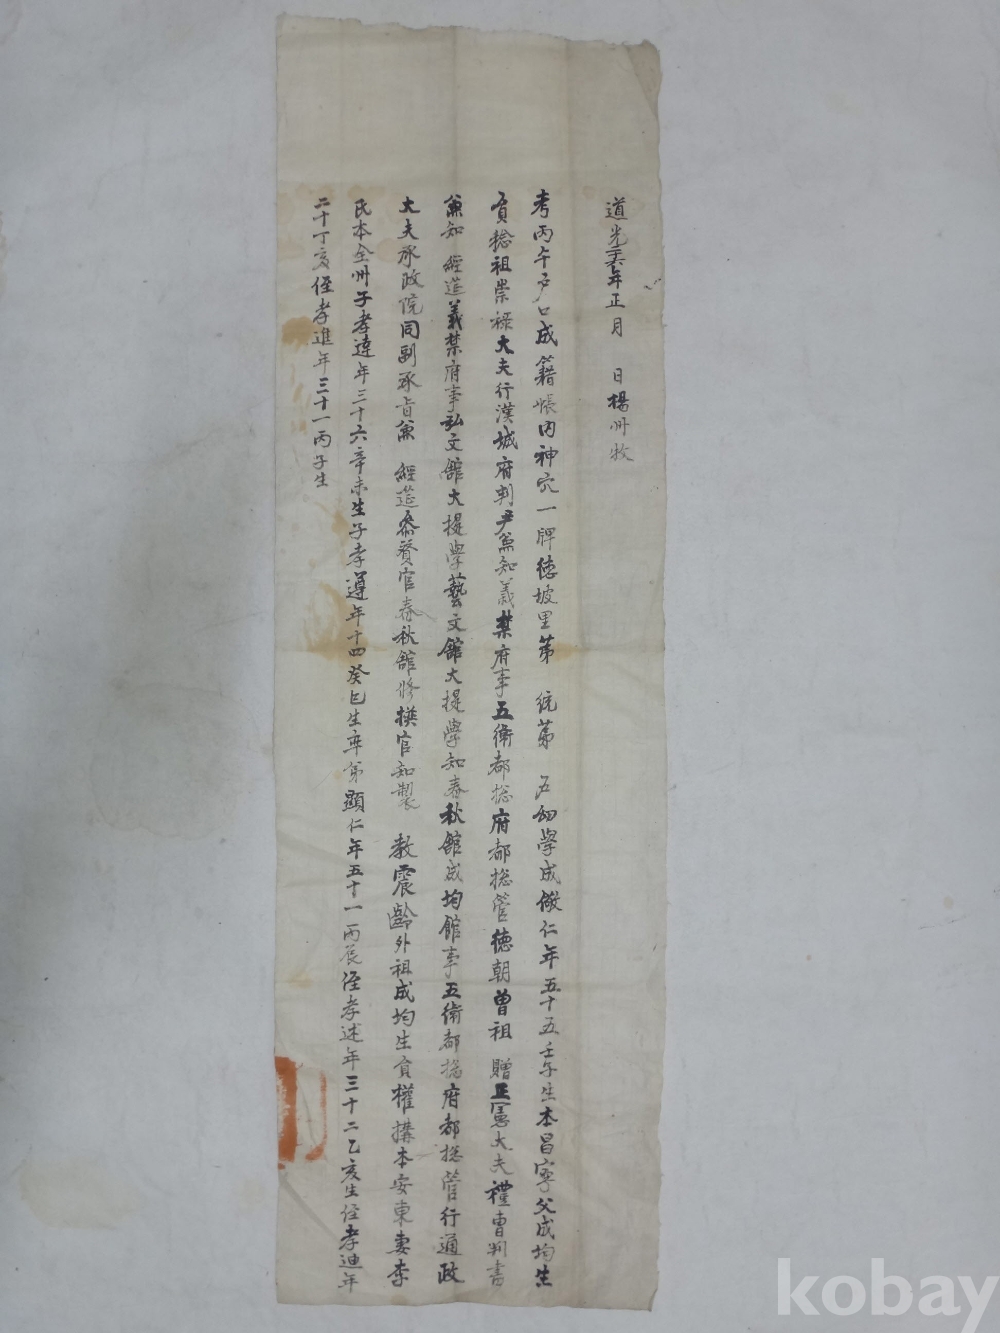 道光年正月 日楊州牧
考丙午戶口成籍帳內神穴一牌德坡里第 統第 戶幼學成儆仁年五十五壬午生本昌寧父成均生
員稔祖崇祿大夫行漢城府判尹兼知義禁府事五衛都摠府都摠管德朝曾祖 贈正憲大夫禮曹判書
兼知 經筵義禁府事弘文館大提學藝文館大提學知春秋館成均館事五衛都摠府都摠管行通政
大夫承政院同副承旨兼 經筵參贊官春秋館修撰官知製 敎震齡外祖成均生員權搆本安東妻李
氏本全州子孝達年三十六辛未生子孝遵年十四癸巳生率弟顯仁年五十一丙辰侄孝述年三十二乙亥生侄孝迪年
二十丁亥侄孝進年三十一丙子生
kobay